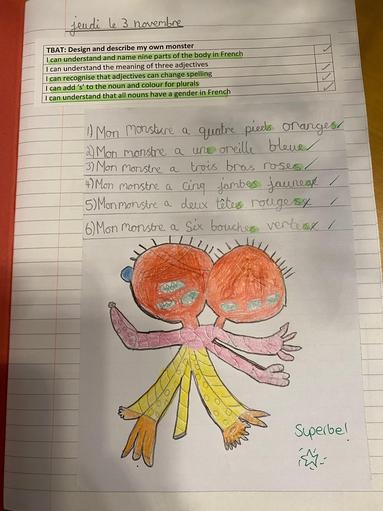 jeudi le 3 novembre
TBAT: Design and describe my own monster
I can understand and name nine parts of the body in French
I can understand the meaning of three adjectives
I can recognise that adjectives can change spelling
I can add 's' to the noun and colour for plurals
I can understand that all nouns have a gender in French
1) Mon monsture a quatre pieds oranges
2) Mon monstre a une oreille bleue
3) Mon monstre a trois bras roses
4) Mon monstre a cinq jambes jaunes
5) Mon monstre a deux têtes rouges
6) Mon monstre a six bouches vertes
Superbe!